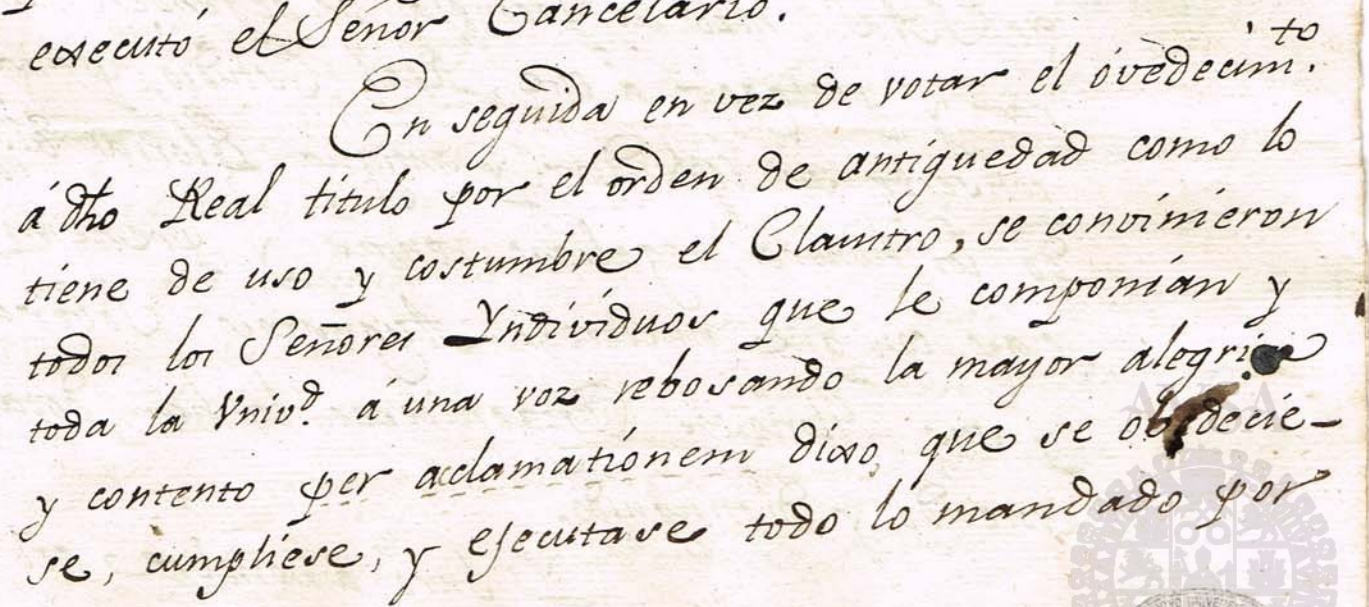 executó el Señor Cancelario.
En seguida en vez de votar el óvedecim.to
á dho Real título por el orden de antiguedad como lo
tiene de uso y costumbre el Claustro, se convinieron
todos los Señores Yndividuos que le componian y
toda la Vnivd. á una voz rebosando la mayor alegria
y contento per aclamationem dixo, que se obedecie-
se, cumpliese, y ejecutase todo lo mandado por